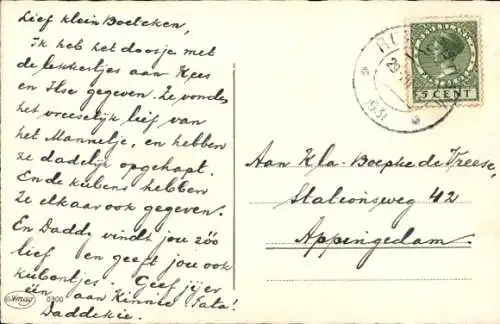 Lief klein Boeleken,
Ik heb het doosje met
de lekkertjes aan Kees
en Ilse gegeven. Ze vonden
het vreeselijk lief van
het Mannetje, en hebben
ze dadelijk opgehapt.
En de kubens hebben
ze elkaar ook gegeven.
En Dadde vindt jou zóó
lief en geeft jou ook
kubentjes. Geef jij er
één aan Kinnie Tata!
Daddekie.
Aan Kla-Boepke de Vreese,
Stationsweg 42
Appingedam.
5 CENT
1931
0300